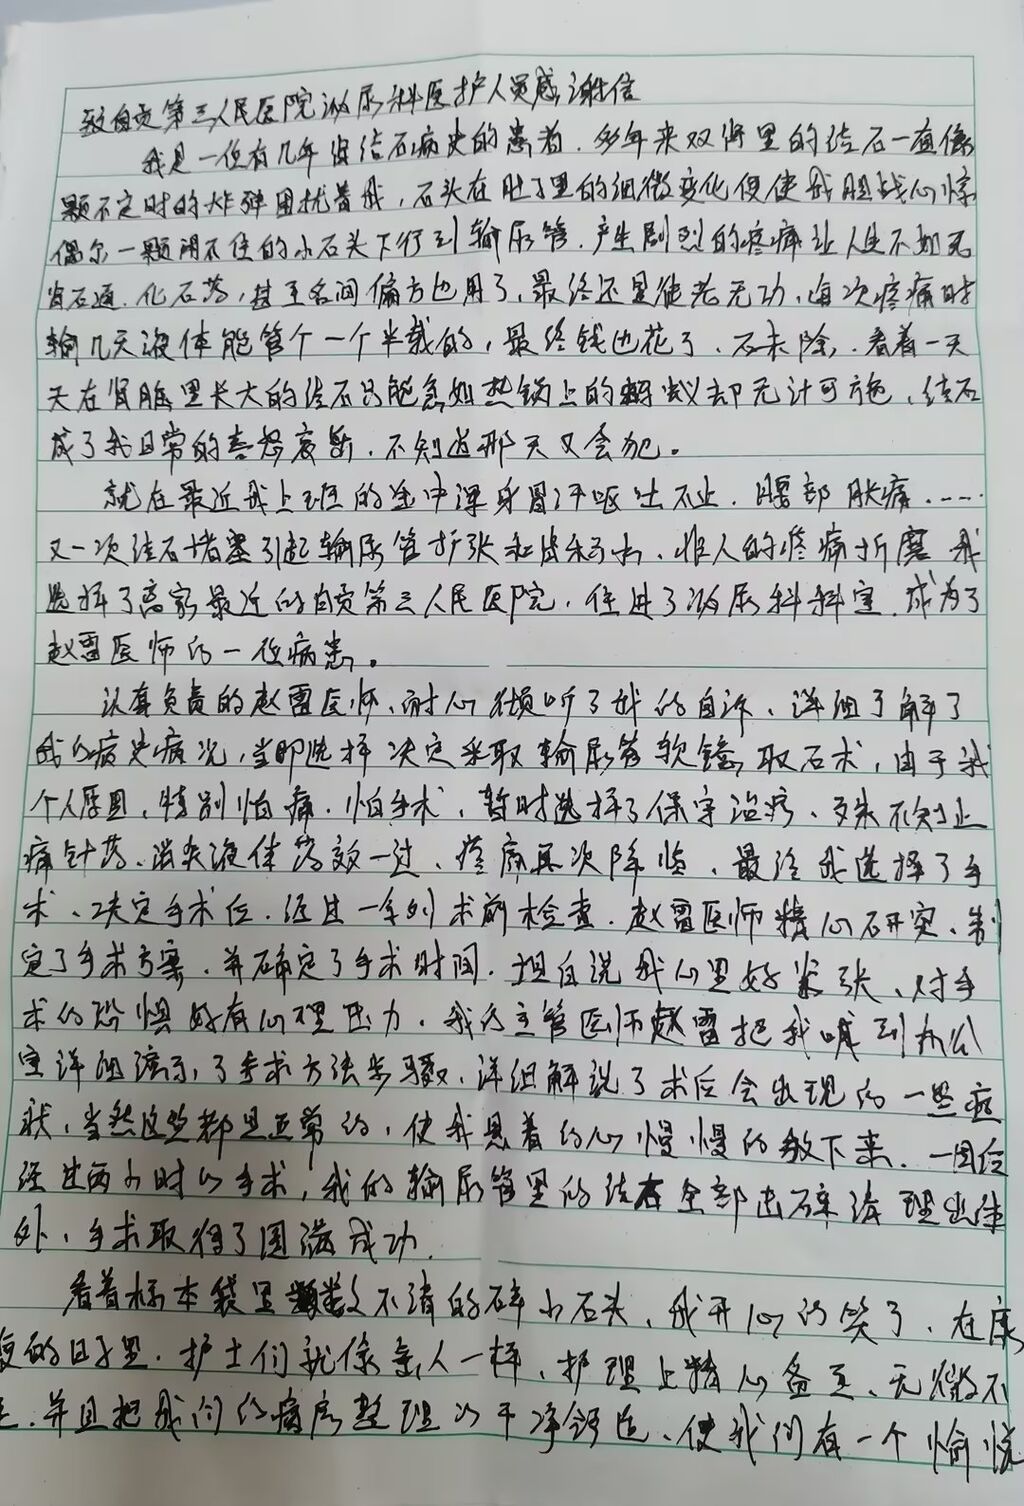 致自贡第三人民医院泌尿科医护人员感谢信
我是一位有几年肾结石病史的患者.多年来双肾里的结石一直像
颗不定时的炸弹困扰着我,石头在肚子里的细微变化便使我胆战心惊
偶尔一颗闭不住的小石头下行到输尿管.产生剧烈的疼痛让人生不如死
肾石通.化石药,甚至名间偏方也用了,最终还是徒劳无功,每次疼痛时
输几天液体能管个一个半载的,最终钱也花了、石未除、看着一天
天在肾脏里长大的结石只能急如热锅上的蚂蚁却无计可施、结石
成了我日常的喜怒哀乐、不知道那天又会犯。
就在最近我上班的途中浑身冒汗呕吐不止.腰部胀痛……
又一次结石堵塞引起输尿管扩张和积水、恼人的疼痛折磨我
选择了离家最近的自贡第三人民医院,住进了泌尿科科室.成为了
赵雷医师的一位病患。
认真负责的赵雷医师、耐心倾听了我的自诉、详细了解了
我的病史病况,当即选择决定采取输尿管软镜取石术,由于我
个人原因,特别怕痛.怕手术,暂时选择了保守治疗、殊不知止
痛针药、消炎液体药效一过、疼痛再次降临、最终我选择了手
术、决定手术后.经过一系列术前检查.赵雷医师精心研究、制
定了手术方案、并确定了手术时间.坦白说我心里好紧张、对手
术的恐惧好有心理压力.我的主管医师赵雷把我喊到办公
室详细演示了手术方法步骤、详细解说了术后会出现的一些症
状,当然这些都是正常的,使我悬着的心慢慢的放下来.
经过两小时的手术,我的输尿管里的结石全部击碎清理出体
外、手术取得了圆满成功.
看着标本袋里数不清的碎小石头、我开心的笑了、在康
复的日子里.护士们就像亲人一样、护理上精心备至、无微不
至.并且把我们的病房整理的干净舒适、使我们有一个愉悦